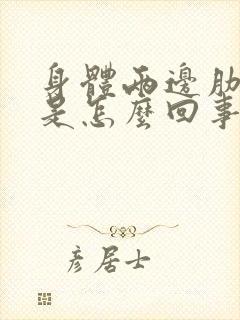 身體兩邊肋
是怎麼回事
彦居士